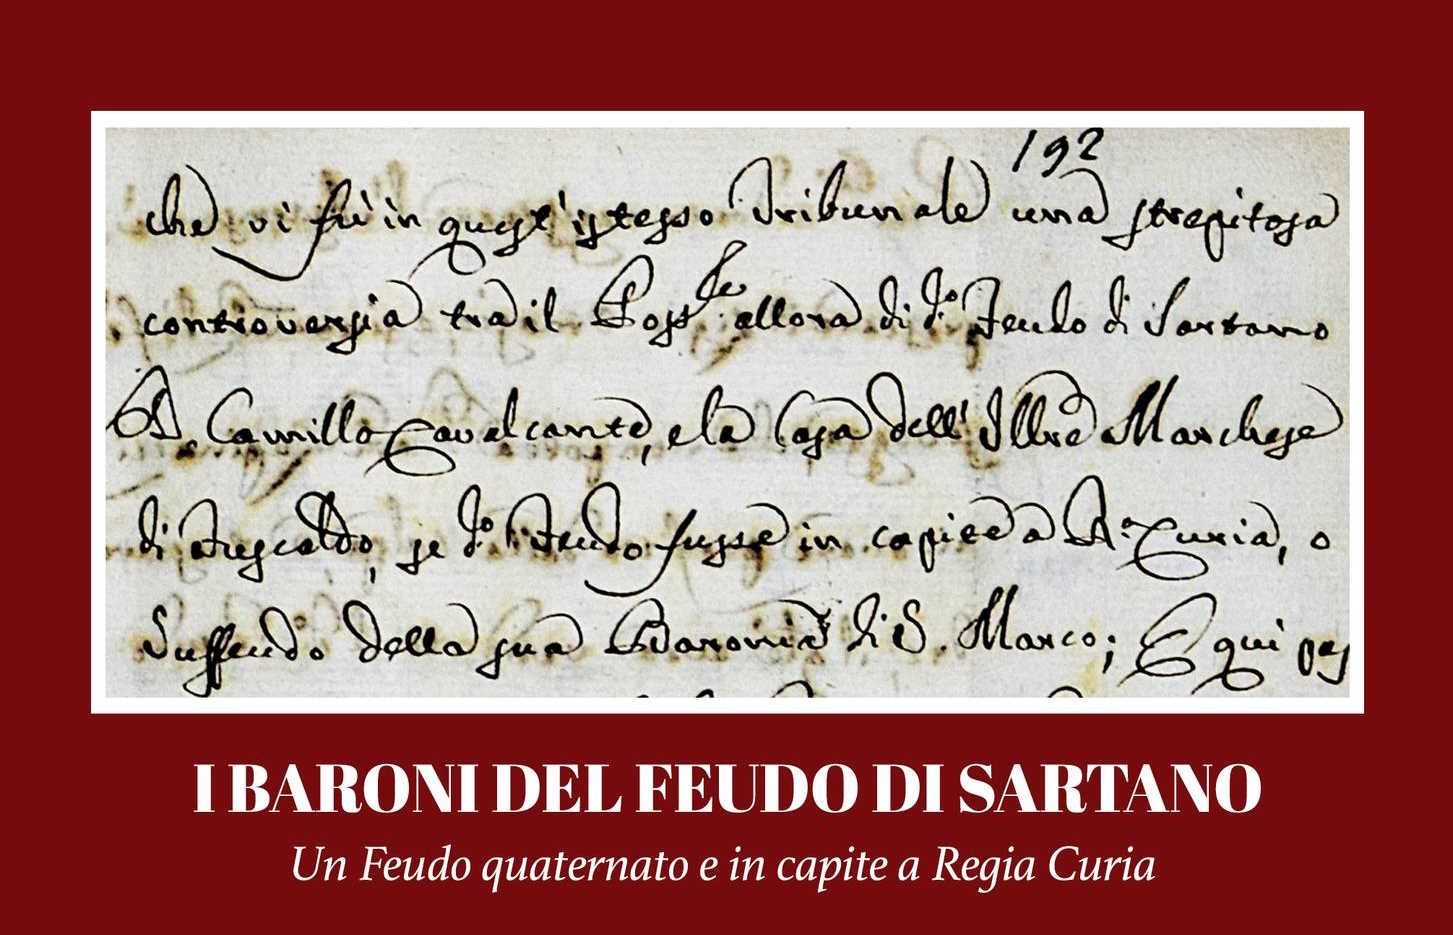 192
che vi fù in quest'istesso Tribunale una strepitosa
controversia tra il Poss.re allora di d.o Feudo di Sartano
D. Camillo Cavalcante, e la Casa dell' Illre Marchese
di Fuscaldo, se d.o Feudo fusse in capite a R.a Curia, o
Suffeudo della sua Baronia di S. Marco; E qui pas
I BARONI DEL FEUDO DI SARTANO
Un Feudo quaternato e in capite a Regia Curia